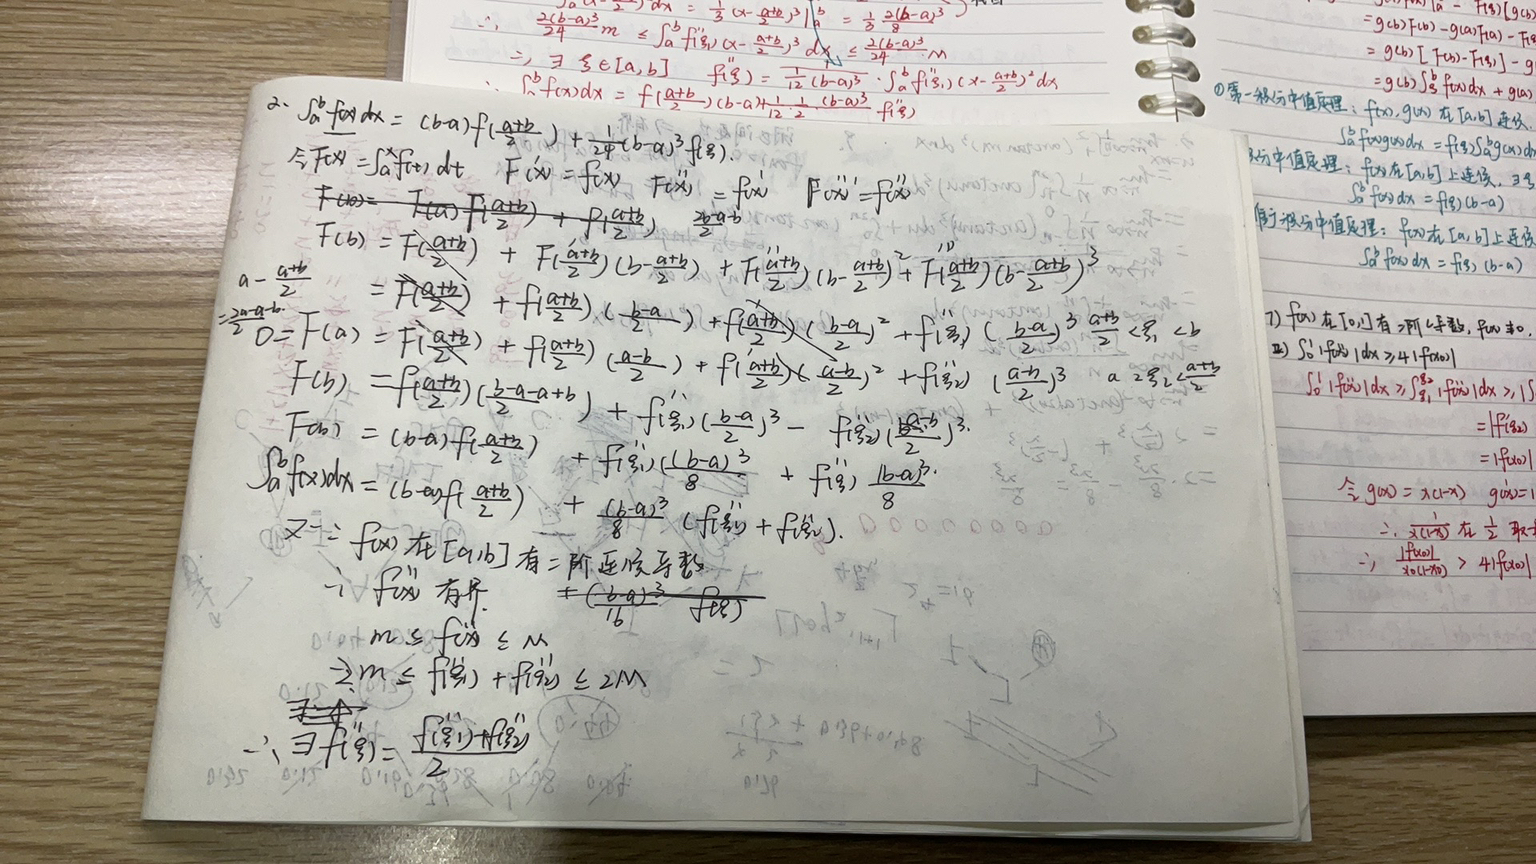 ∫ₐᵇ f''(ξ₁)(x-(a+b)/2)²dx = 1/3 (x-(a+b)/2)³|ₐᵇ = 1/3 · 2(b-a)³/8
∴ 2(b-a)³/24 m ≤ ∫ₐᵇ f''(ξ₁)(x-(a+b)/2)³ dx ≤ 2(b-a)³/24 · M
∴ ∃ ξ∈[a,b] f''(ξ) = 1/(1/12 (b-a)³) · ∫ₐᵇ f''(ξ₁)(x-(a+b)/2)²dx
∴ ∫ₐᵇ f(x)dx = f((a+b)/2)(b-a)+1/12 · 1/2 · (b-a)³ f''(ξ)
2. ∫ₐᵇ f(x)dx = (b-a)f((a+b)/2) + 1/24 (b-a)³ f''(ξ).
令F(x)=∫ₐˣ f(t)dt F'(x)=f(x) F''(x)=f'(x) F'''(x)=f''(x)
F(b) = F((a+b)/2) + F'((a+b)/2)(b-(a+b)/2) + F''((a+b)/2)(b-(a+b)/2)² + F'''((a+b)/2)(b-(a+b)/2)³
a-(a+b)/2
= F((a+b)/2) + f((a+b)/2)((b-a)/2) + f'((a+b)/2)((b-a)/2)² + f''(ξ₁)((b-a)/2)³ (a+b)/2<ξ₁<b
=(2a-a-b)/2
0=F(a) = F((a+b)/2) + f((a+b)/2)((a-b)/2) + f'((a+b)/2)((a-b)/2)² + f''(ξ₂)((a-b)/2)³ a<ξ₂<(a+b)/2
F(b) = f((a+b)/2)((b-a-a+b)/2) + f''(ξ₁)((b-a)/2)³ - f''(ξ₂)((a-b)/2)³.
F(b) = (b-a)f((a+b)/2) + f''(ξ₁)((b-a)³/8 + f''(ξ) (b-a)³/8.
∫ₐᵇ f(x)dx = (b-a)f((a+b)/2) + (b-a)³/8 (f''(ξ₁)+f''(ξ₂)).
又∵ f(x)在[a,b]有二阶连续导数
∴ f''(x) 有界.
m ≤ f''(x) ≤ M
2m ≤ f''(ξ₁)+f''(ξ₂) ≤ 2M
∴ ∃ f''(ξ)= (f''(ξ₁)+f''(ξ₂))/2
=g(b)F(b)-g(a)F(a)-
=g(b)[F(b)-F(ξ)]-g
=g(b)∫ f(x)dx+g(a)
①第一积分中值定理: f(x),g(x)在[a,b]连续
∫ₐᵇ f(x)g(x)dx=f(ξ)∫ₐᵇ g(x)dx
积分中值定理: f(x)在[a,b]上连续, ∃ξ
∫ₐᵇ f(x)dx=f(ξ)(b-a)
推广积分中值定理: f(x)在[a,b]上连续
∫ₐᵇ f(x)dx=f(ξ)(b-a)
7) f(x)在[0,1]有二阶导数, f(x)≠0.
∫₀¹|f''(x)|dx≥4|f(x₀)|
∫₀¹|f''(x)|dx≥∫|f''(x)|dx≥|∫
=|f'(ξ₂)
=|f(x₀)|
令g(x)=x(1-x) g'(x)=1
∴ 1/(x(1-x)) 在1/2取
∴ |f(x₀)|/(x₀(1-x₀)) > 4|f(x₀)|